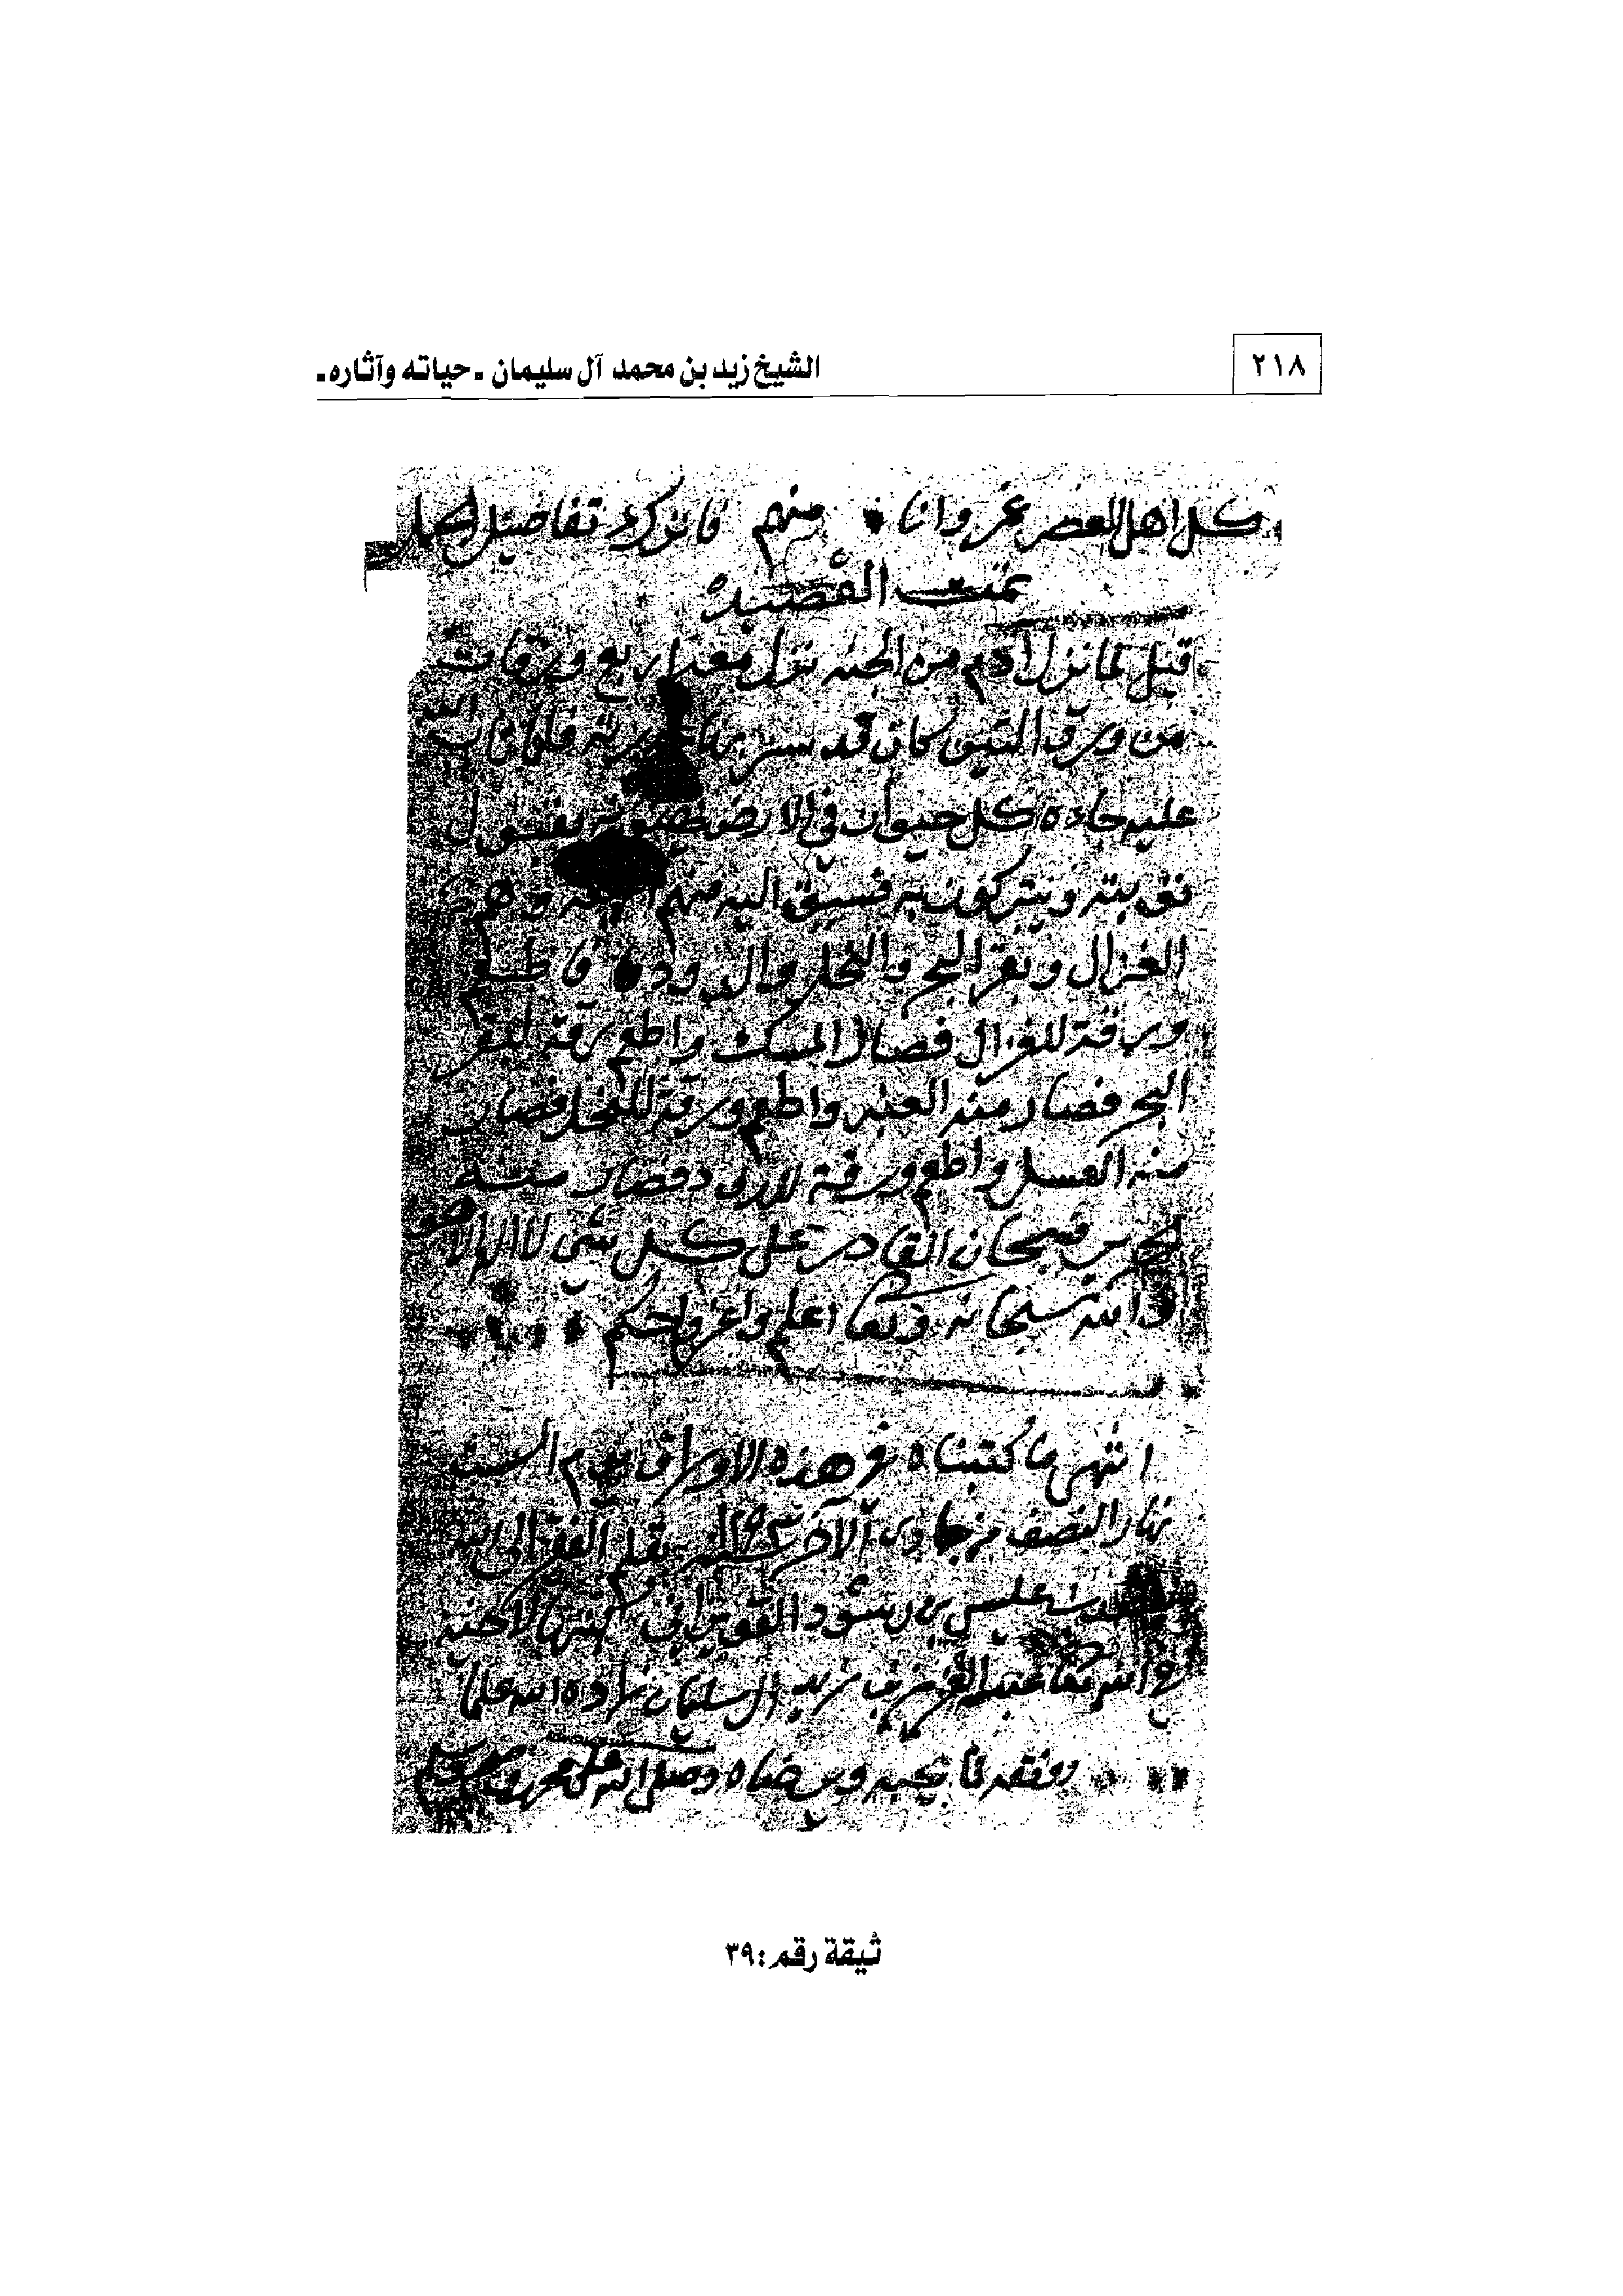 ٢١٨
الشيخ زيد بن محمد آل سليمان - حياته وآثاره -
كل اهل العصر عمر وانا * منهم فاترك تفاصيل الجمل
تمت القصيده
قيل لما نزل ادم من الجنه نزل معه اربع ورقات
من ورق التين كان قد ستر بها فلما تاب الله
عليه جاءه كل حيوان في الارض
توبته ويتبركون به فسبق اليه منهم اربعه وهم
الغزال وبقر البحر والنحل والدوده فاطعم
ورقة للغزال فصار المسك واطعم ورقة لبقر
البحر فصار منه العنبر واطعم ورقة للنحل فصار
منه العسل واطعم ورقة للدود فصار منه
الحرير فسبحان القادر على كل شي لا اله الا هو
والله سبحانه وتعا اعلم واعز واحكم
انتهى ما كتبناه في هذه الاوراق يوم السبت
نهار النصف من جماوى الآخر سنه بقلم الفقير الى الله
بن رشود كتبها لاخيه
في الله عبد العزيز بن زيد ال سليمان زاده الله علما
ووفقه لما يحبه ويرضاه وصلى الله على محمد وصحبه وسلم
ثيقة رقم: ٣٩